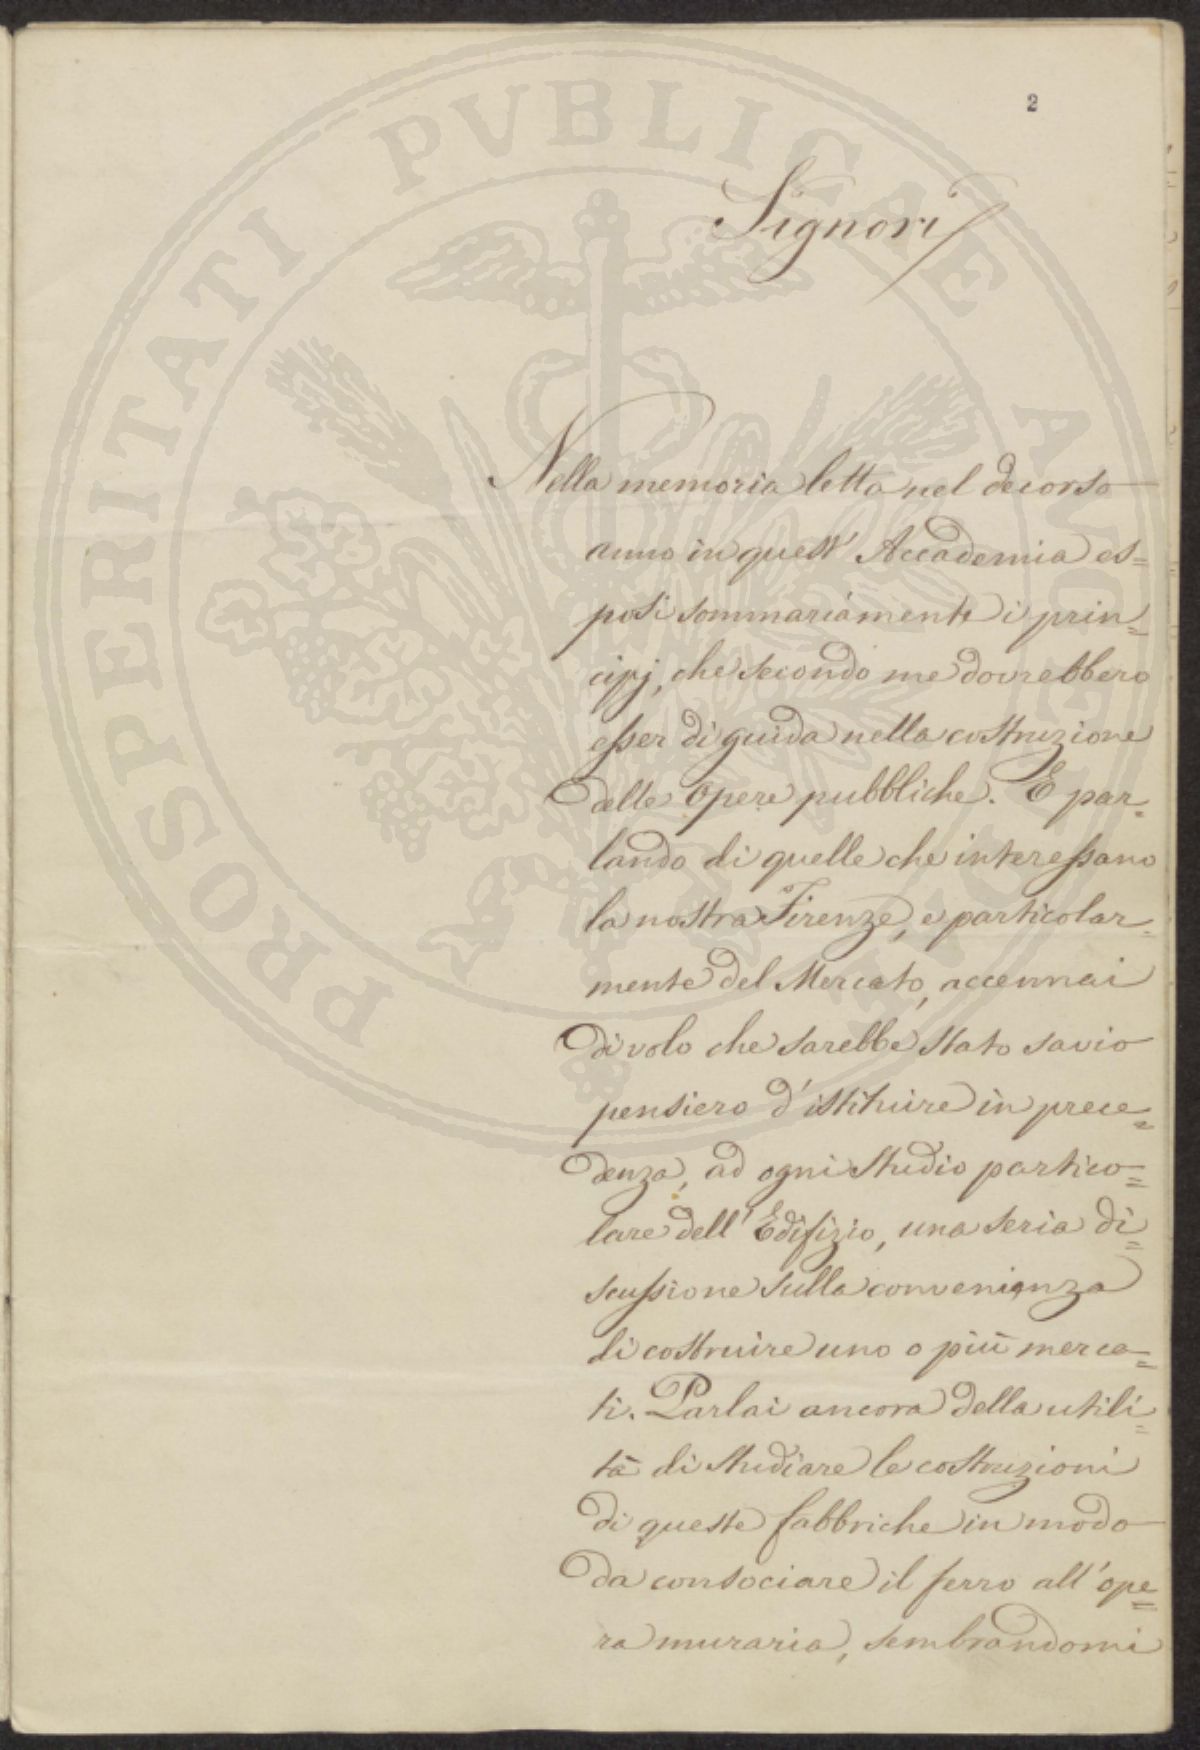 2
Signori
Nella memoria letta nel decorso
anno in quest' Accademia es=
posi sommariamente i prin=
cipj, che secondo me dovrebbero
esser di guida nella costruzione
delle Opere pubbliche. E par=
lando di quelle che interessano
la nostra Firenze, e particolar=
mente del Mercato, accennai
di volo che sarebbe stato savio
pensiero d'istituire in prece=
denza, ad ogni studio partico=
lare dell'Edifizio, una seria di=
scussione sulla convenienza
di costruire uno o più merca=
ti. Parlai ancora della utili=
tà di studiare le costruzioni
di queste fabbriche in modo
da consociare il ferro all'ope=
ra muraria, sembrandomi
PROSPERITATI PVBLICAE AVGENDAE